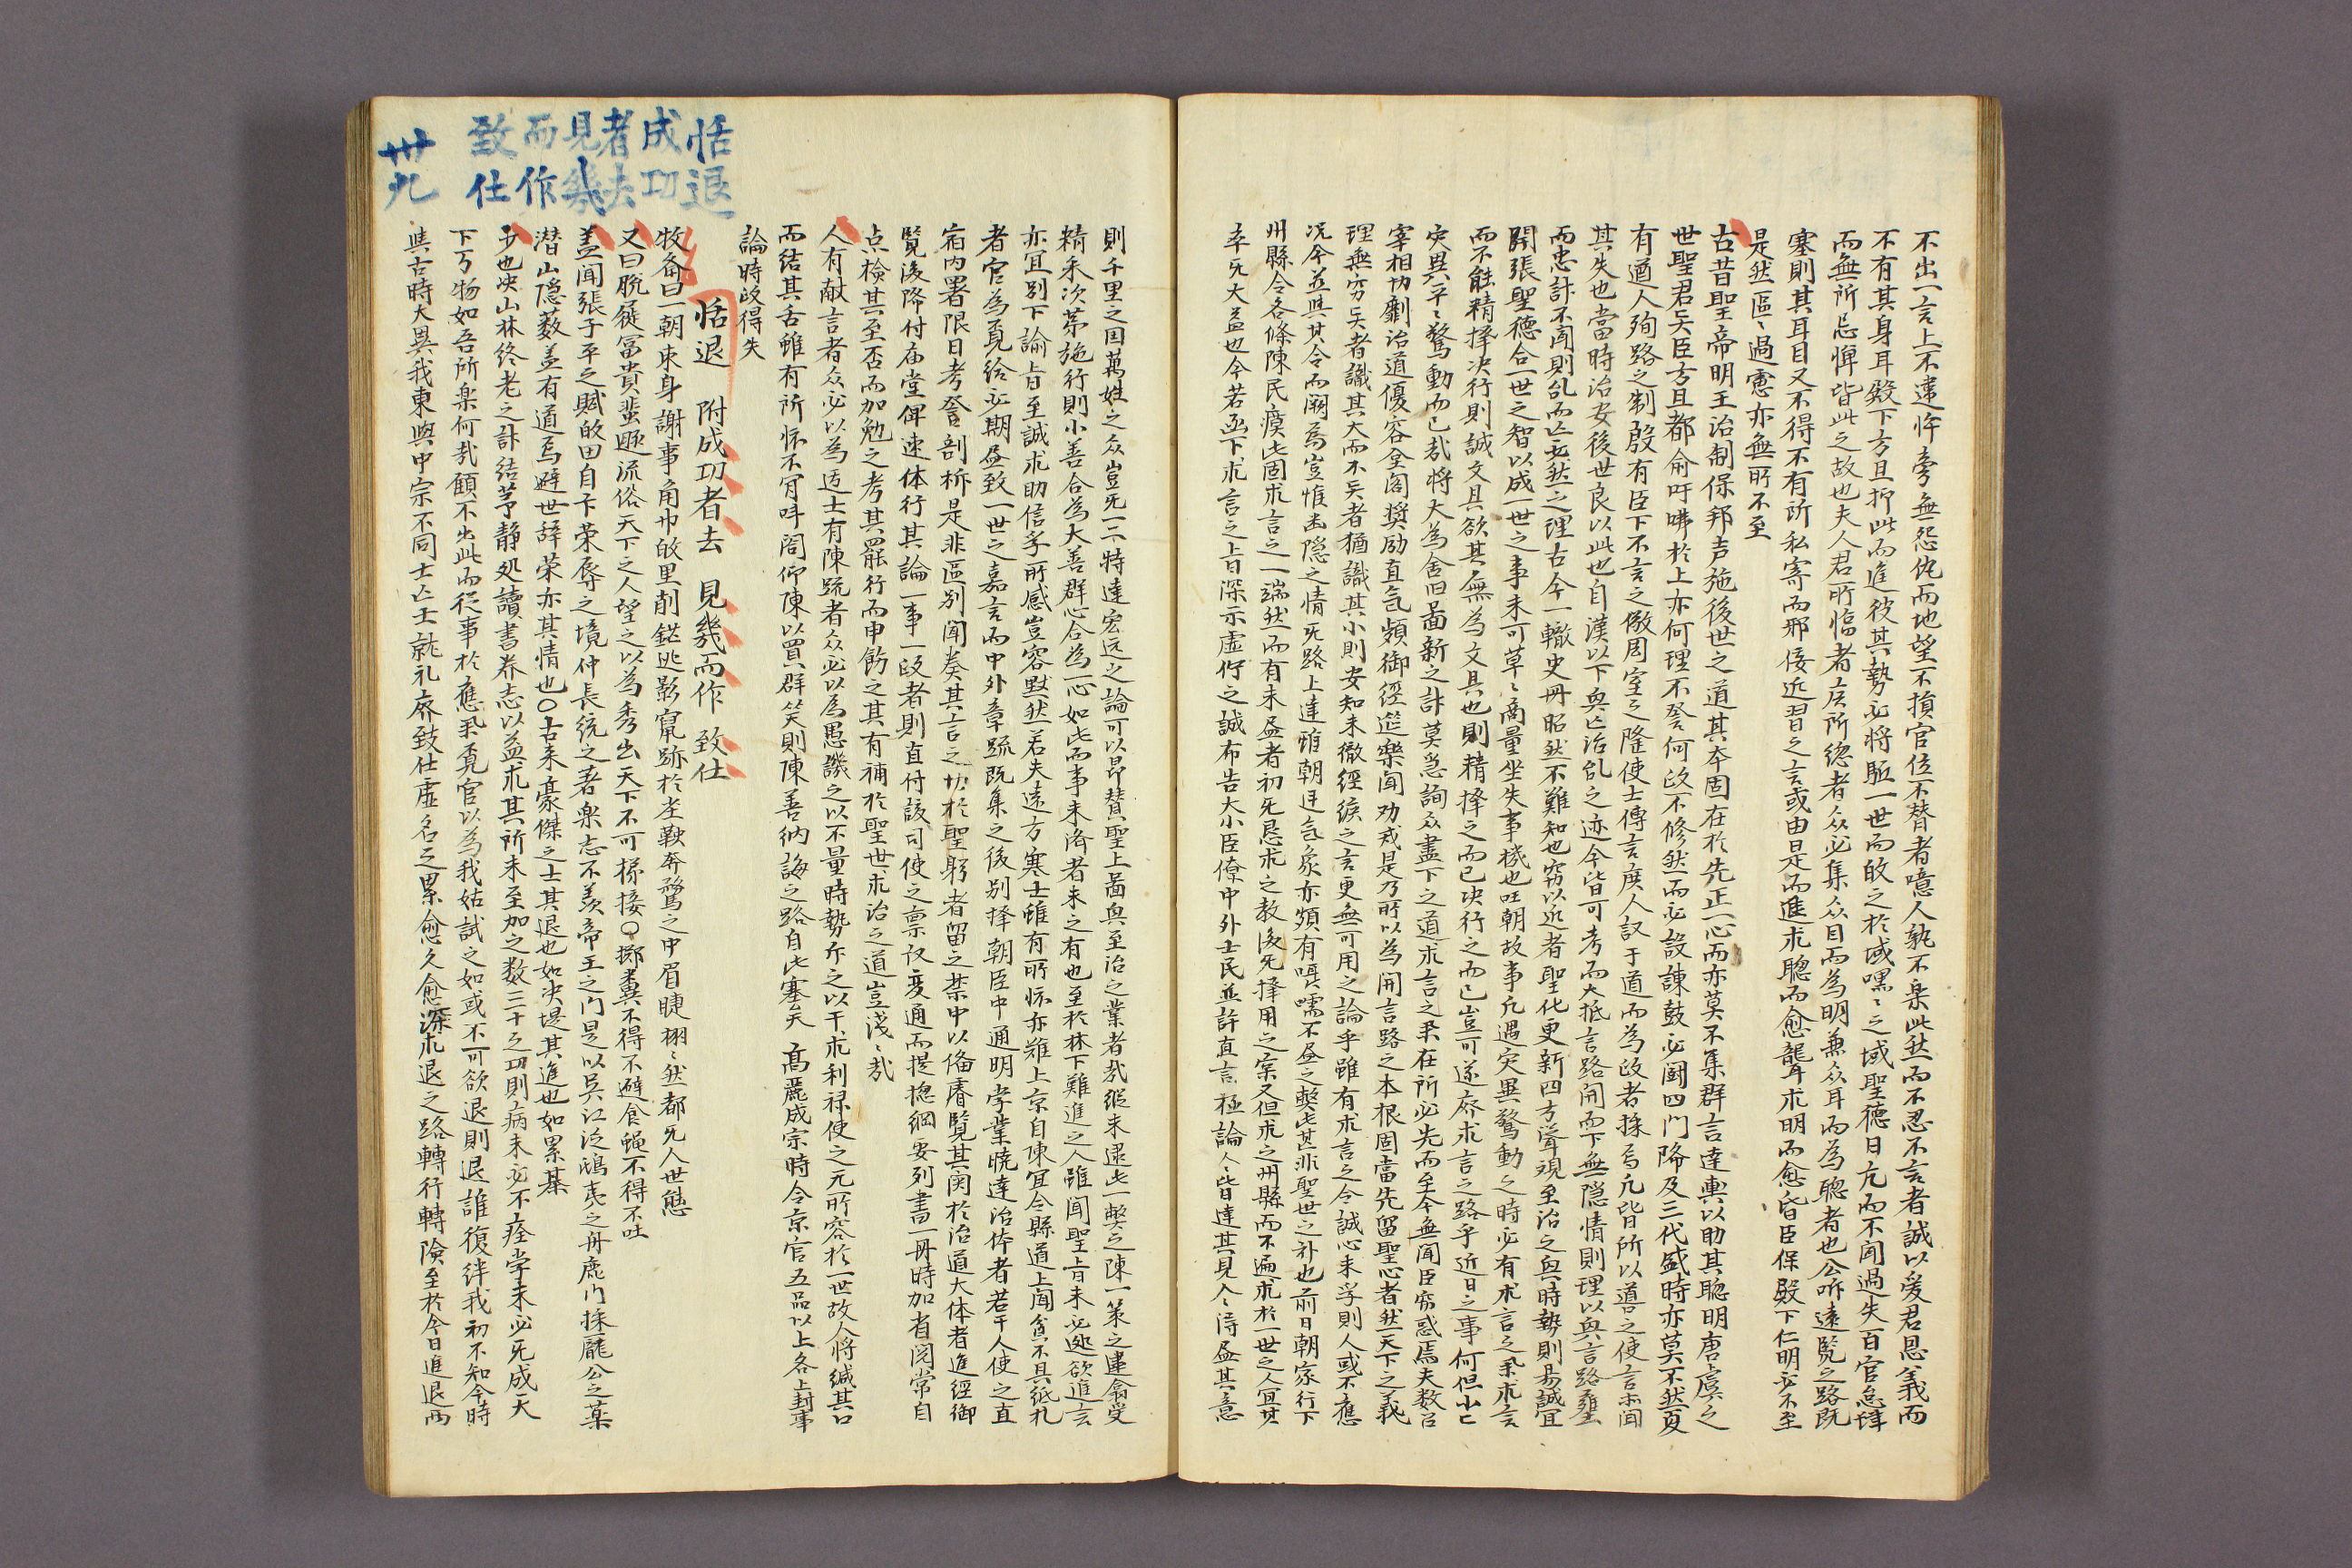 不出一言上不違忤旁無怨仇而地望不損官位不替者噫人孰不楽此然而不忍不言者誠以爱君恩義而
不有其身耳殿下方且抑此而進彼其勢必将駈一世而
之域聖德日亢而不闻過失百官怠
而無所忌憚皆此之故也夫人君所
者
所總者众必集众目而為明兼众耳而為聰者也公听遠覧之路既
塞則其耳目又不得不有所私寄而邪佞近習之言或由是而進求聰而愈聾求明而愈昏臣保殿下仁明必不至
是然區〻過慮亦無所不至
古昔聖帝明王治制保邦声施後世之道其夲固在於先正一心而亦莫不集群言達輿以助其聡明唐虞之
世聖君
臣方且都俞吁咈於上亦何理不
何政不修然而必設諫鼓必闢四门降及三代盛時亦莫不然夏
有遒人徇路之制殷有臣下不言之儆周室之隆使士傳言庶人
于道而為政者採焉凡皆所以道之使言
闻
其失也當時治安後世良以此也自漢以下興亡治乱之迹今皆可考而大抵言路開而下無隠情則理以興言路壅
而忠計不闻則乱而亡必然之理古今一轍史冊昭然不難知也窃以近者聖化更新四方聳視至治之興時勢則易誠宜
開張聖德合一世之智以成一世之事未可草〻商量坐失事機也
朝故事凡遇灾異驚動之時必有求言之
求言
而不能精择决行則誠文具欲其無為文具也則精择之而已决行之而已豈可遂废求言之路乎近日之事何但小〻
灾異六平〻驚動而已㢤将大為舍旧啚新之計莫急詢众盡下之道求言之
在所必先而至今無闻臣窃惑焉夫数召
宰相切劘治道優容
閣奨励直気頻御經筵楽闻功戒是乃所以為開言路之本根固當先留聖心者然天下之義
理無穷
者識其大而不
者猶識其小則安知未徹經
之言更無可用之論乎雖有求言之令誠心未孚則人或不應
况今並與其令而阙焉豈惟幽隠之情旡路上達雖朝廷気象亦頻有
嚅不尽之獘此甚非聖世之
也前日朝家行下
州縣令各條陳民瘼此固求言之一端然而有未尽者初旡恳求之教後旡择用之案又但求之州縣而不遍求於一世之人冝其
卒旡大益也今若亟下求言之旨深示虚佇之誠布告大小臣僚中外士民並許直言極論人〻皆達其見人〻得尽其意
則千里之国萬姓之众豈旡一二特達宏远之論可以昂賛聖上啚興至治之業者㢤縦未逮此一獘之陳一策之建翕受
精采次苐施行則小善合為大善群心合為一心如此而事未済者未之有也至於林下難進之人雖闻聖旨未必
欲進言
亦宜别下諭旨至誠求助信孚所感豈容黙然若夫遠方寒士雖有所怀亦难上京自陳冝令縣道上闻貧不具紙札
者官為覔给必期尽致一世之嘉言而中外章疏既集之後别择朝臣中通明学業暁達治体者若干人使之直
宿内署限日考
剖柝是非區别闻奏其言之切於聖躬者留之禁中以俻
覧其関於治道大体者進經御
覧後降付庙堂俾速体行其論一事一政者則直付該司使之禀
変通而提揔綱要列書一冊時加省閲常自
点檢其至否而加勉之考其
能行而申飭之其有補於聖世求治之道豈浅〻㢤
人有献言者众必以為
士有陳疏者众必以為愚譏之以不量時勢斥之以干求利禄使之无所容於一世故人将緘其口
而结其舌雖有所怀不肯呌阁仰陳以買群笑則陳善纳誨之路自此塞矣　高麗成宗時令京官五品以上各上封事
論時政得失
恬退　附成功者去　見幾而作　致仕
牧斋曰一朝朿身謝事角巾
里削鋩逃影竄跡於埃鞅奔騖之中眉睫栩〻然都旡人世態
又曰脱屣冨貴蜚遯流俗天下之人望之以為秀出天下不可梯接○擲糞不得不避食蝇不得不吐
盖闻張子平之賦
田自卞荣辱之境仲長统之著楽志不羡帝王之门是以吳江泛鴟夷之舟鹿门採龐公之藥
潜山隠薮盖有道焉避世辞荣亦其情也○古来豪傑之士其退也如决堤其進也如累棊
乎也决山林终老之計结芧静処讀書养志以益求其所未至加之数三十之功則病未必不痊学未必旡成天
下万物如吾所楽何㢤顧不出此而從事於應
覔官以為我姑試之如或不可欲退則退誰復絆我初不知今時
與古時大異我東與中宗不同士亡士就礼废致仕虚名之累愈久愈深求退之路轉行轉險至於今日進退两
恬退
成功
者去
見幾
而作
致仕
卅九